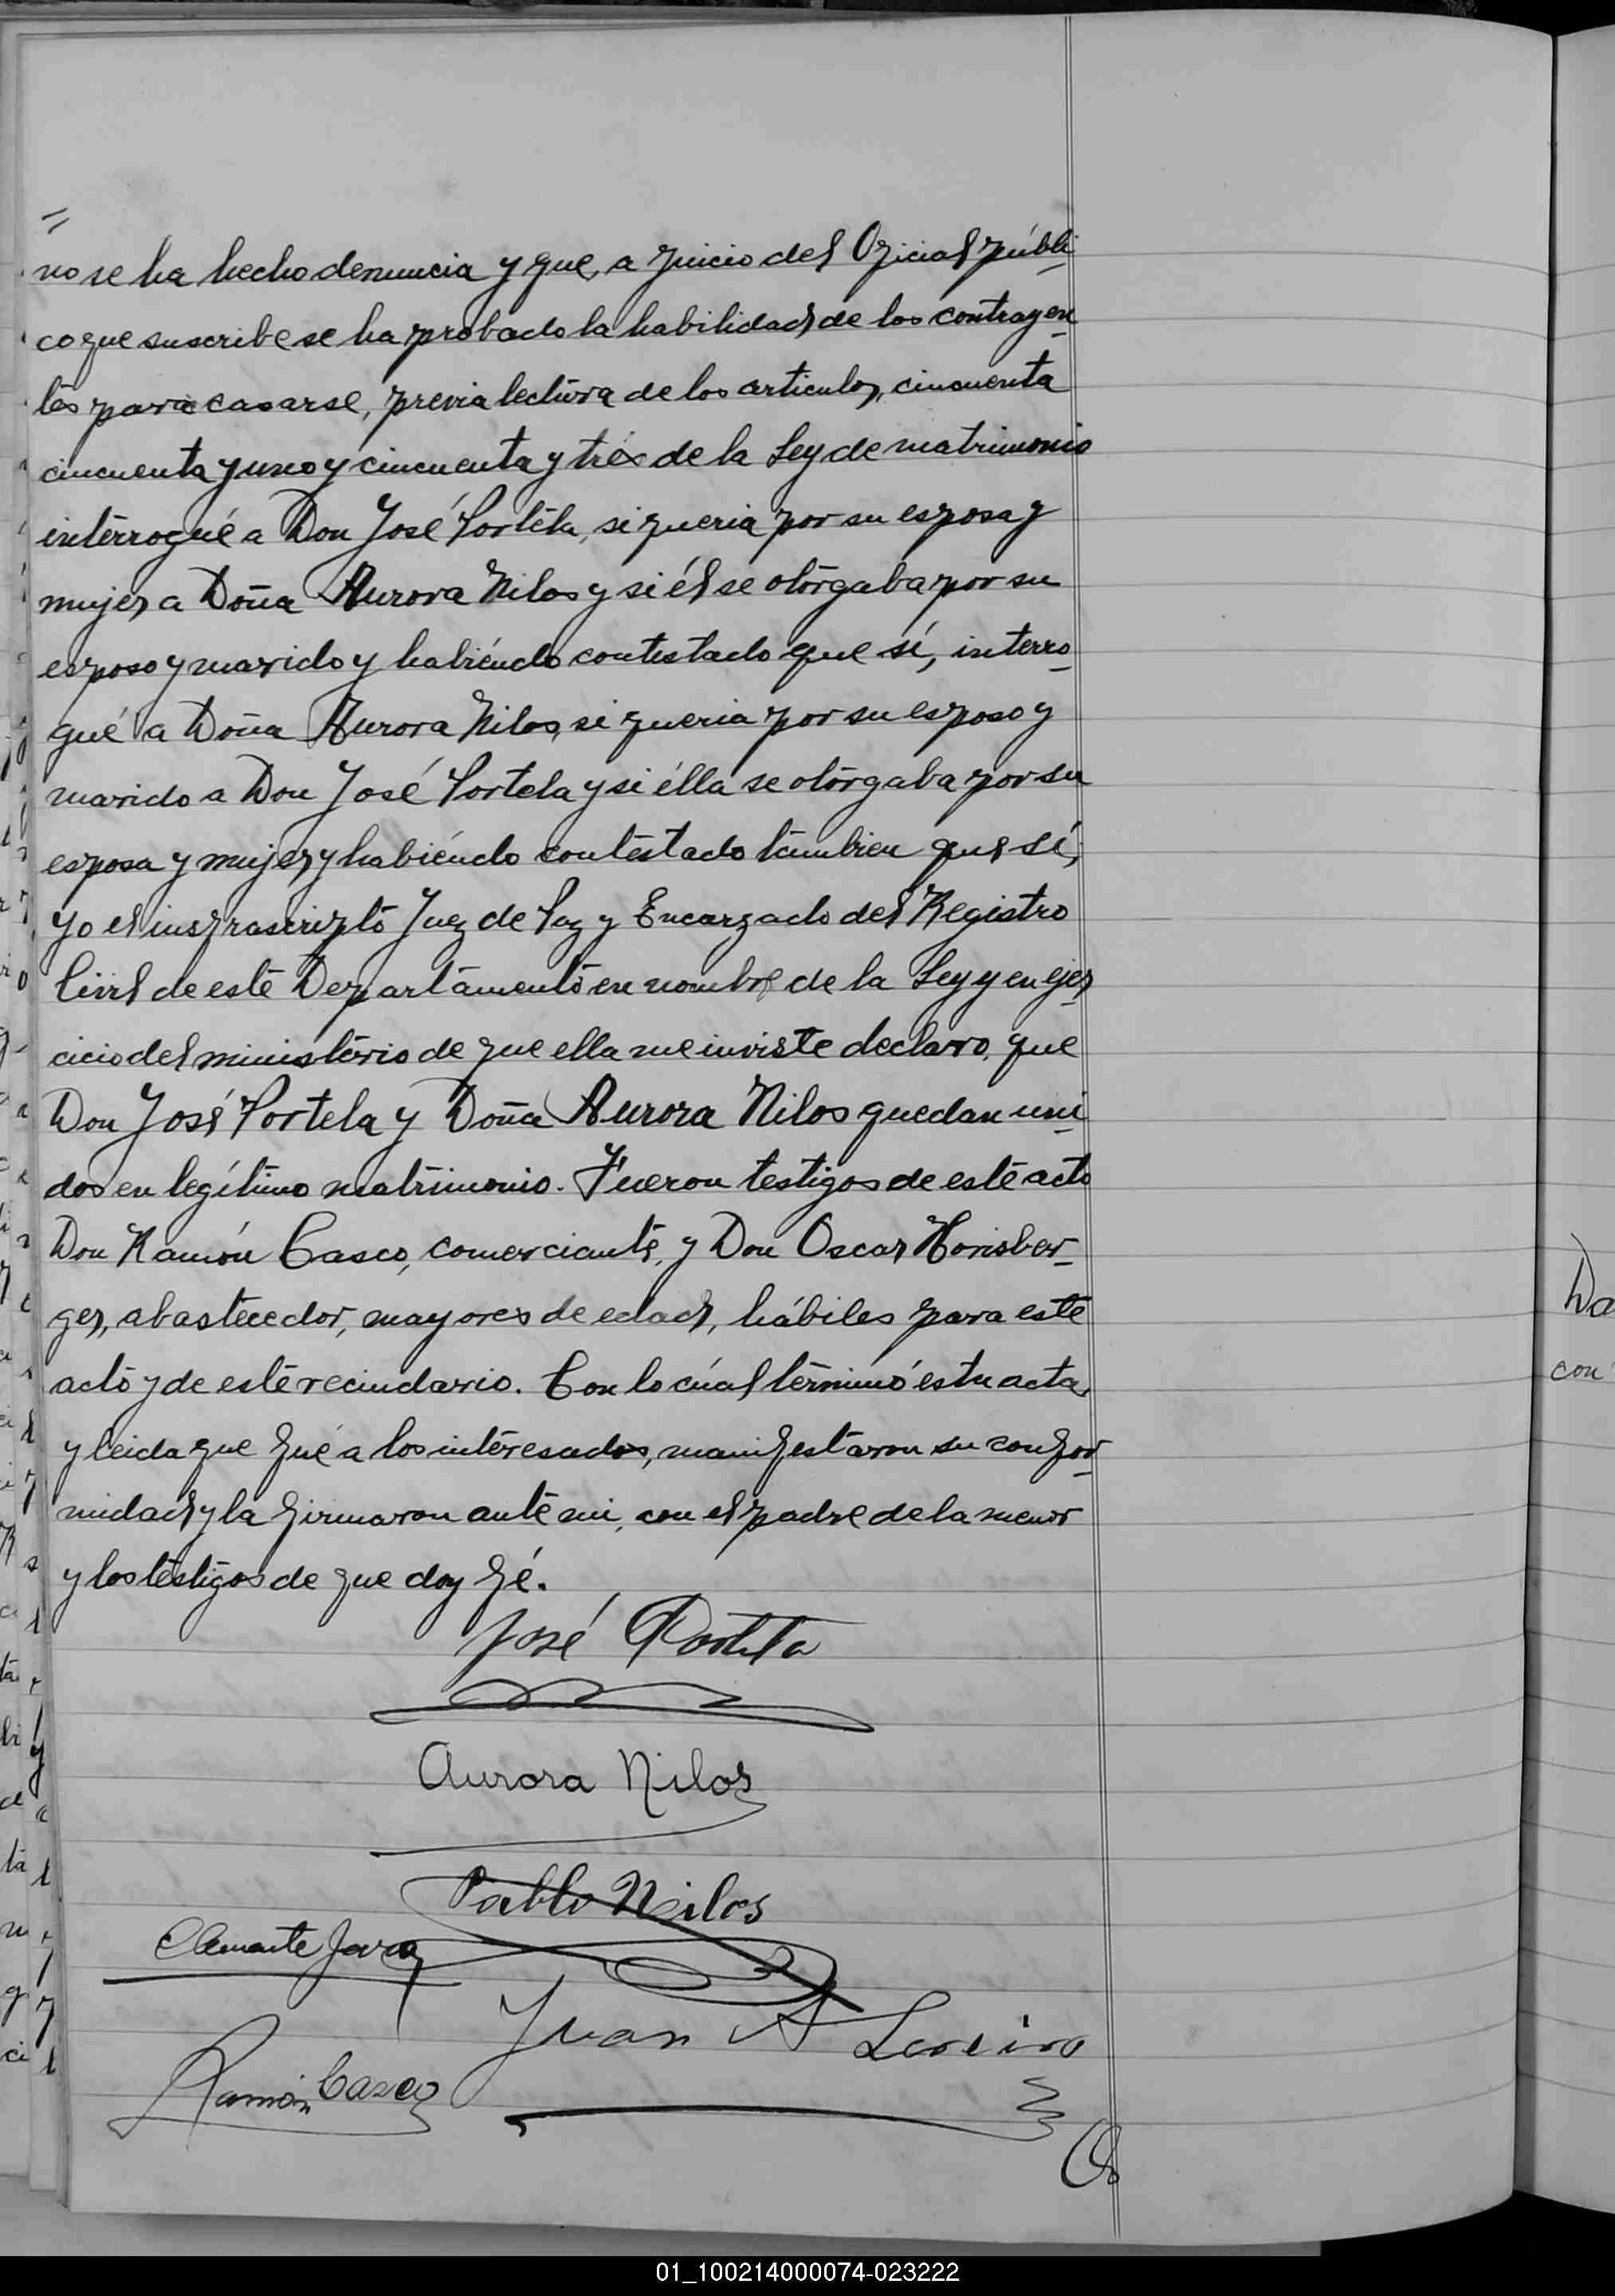 =
no se ha hecho denuncia y que, a juicio del Oficial públi-
co que suscribe se ha probado la habilidad de los contrayen-
tes para casarse, previa lectura de los articulos, cincuenta
cincuenta y uno y cincuenta y tres de la Ley de matrimonio
interrogué a Don José Portela, si queria por su esposa y
mujer a Doña Aurora Nilos y si él se otorgaba por su
esposo y marido y habiéndo contestado que sí, interro-
gué a Doña Aurora Nilos, si queria por su esposo y
marido a Don José Portela y si élla se otorgaba por su
esposa y mujer y habiéndo contestado tambien que sí,
yo el insfrascripto Juez de Paz y Encargado del Registro
Civil de este Departamento en nombre de la Ley y en ejer-
cicio del ministerio de que ella me inviste declaro, que
Don José Portela y Doña Aurora Nilos quedan uni-
dos en legítimo matrimonio. Fueron testigos de este acto
Don Ramón Casco, comerciante, y Don Oscar Honsber-
ger, abastecedor, mayores de edad, hábiles para este
acto y de este vecindario. Con lo cúal términó esta acta,
y leida que fué a los interesados, manifestaron su confor-
midad y la firmaron ante mi, con el padre de la menor
y los testigos de que doy fé.
José Portela
Aurora Nilos
Pablo Nilos
Clemente Jara
Juan A Loreiro
Ramón Casco
Da
con
01_100214000074-023222